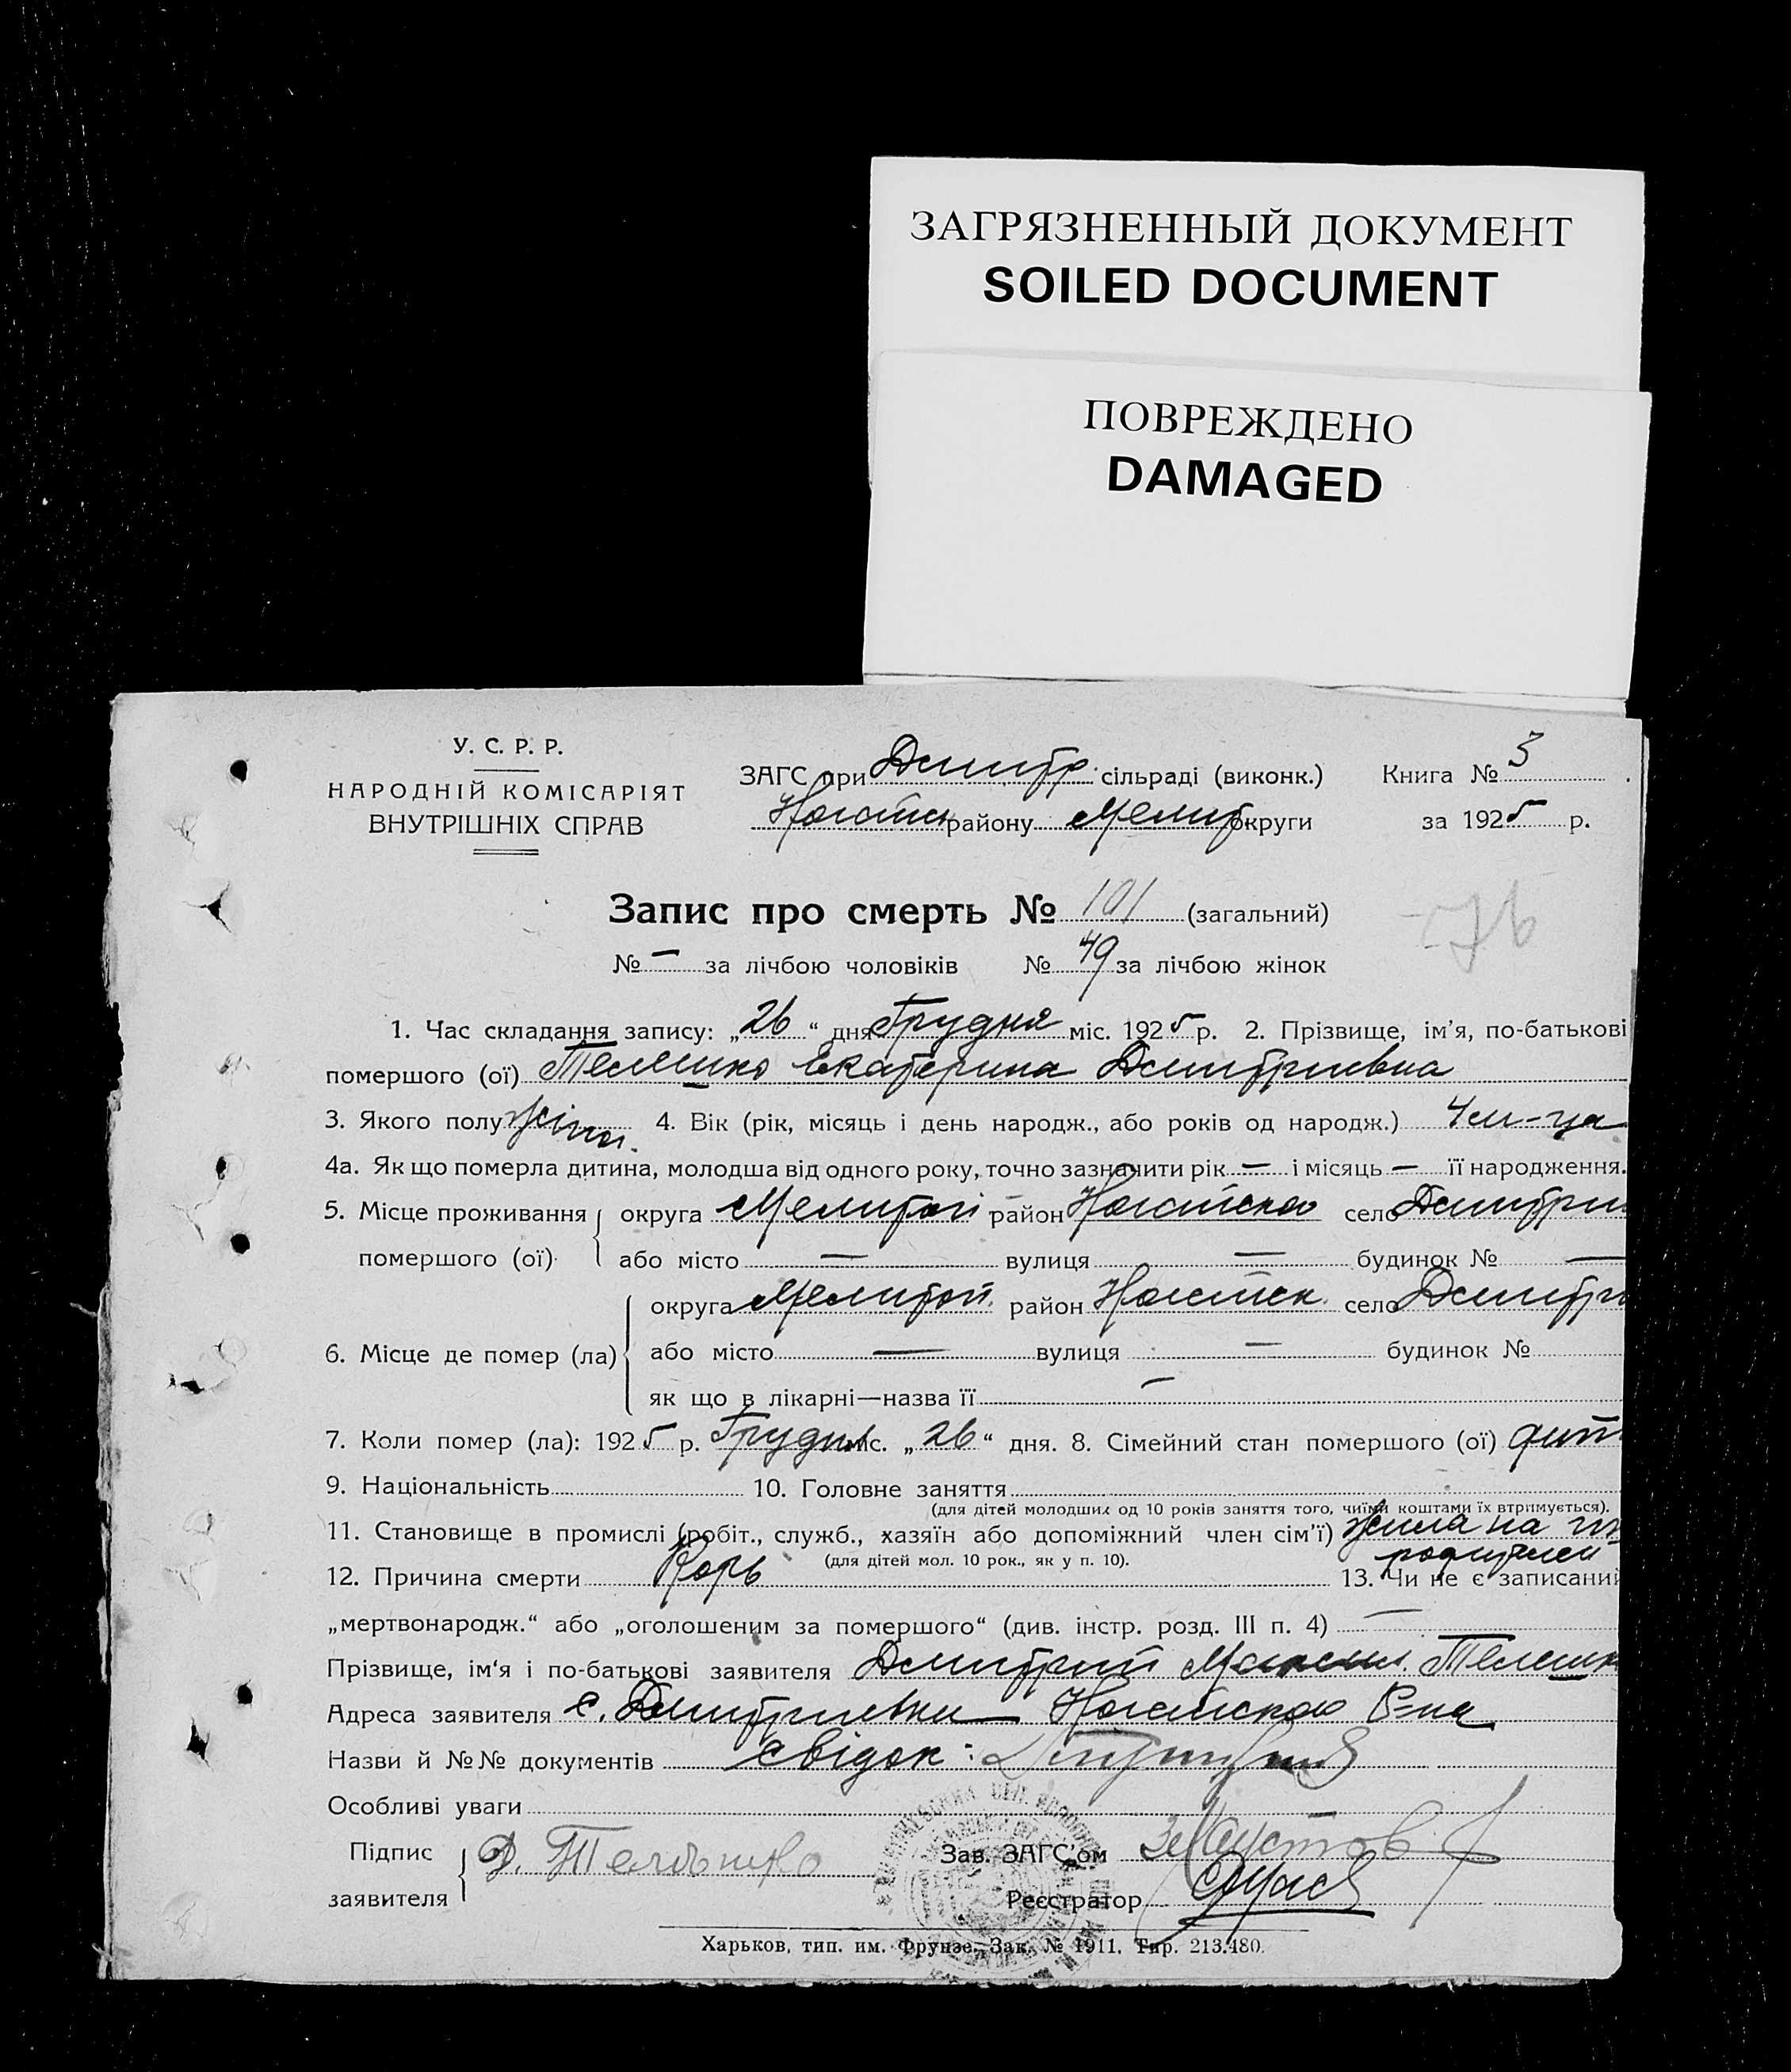 ЗАГРЯЗНЕННЫЙ ДОКУМЕНТ
SOILED DOCUMENT
ПОВРЕЖДЕНО
DAMAGED
У. С. Р. Р.
НАРОДНІЙ КОМІСАРІЯТ
ВНУТРІШНІХ СПРАВ
ЗАГС при Дмитр. сільраді (виконк.) Книга № 3
Ногайск району Мелит. округи за 1925 р.
76
Запис про смерть № 101 (загальний)
№ — за лічбою чоловіків № 49 за лічбою жінок
1. Час складання запису: „26“ дня Грудня міс. 1925 р. 2. Прізвище, ім'я, по-батькові
помершого (ої) Телешко Екатерина Дмитриевна
3. Якого полу жіноч. 4. Вік (рік, місяць і день народж., або років од народж.) 4 м-ца
4а. Як що померла дитина, молодша від одного року, точно зазначити рік — і місяць — її народження.
5. Місце проживання округа Мелитоп район Ногайского село Дмитри
помершого (ої) або місто — вулиця — будинок № —
округа Мелитоп. район Ногайск. село Дмитри
6. Місце де помер (ла) або місто — вулиця — будинок №
як що в лікарні—назва її —
7. Коли помер (ла): 1925 р. Грудня міс. „26“ дня. 8. Сімейний стан помершого (ої) дит
9. Національність 10. Головне заняття
(для дітей молодших од 10 років заняття того, чиїми коштами їх втримується).
11. Становище в промислі (робіт., служб., хазяїн або допоміжний член сім'ї) жила на
(для дітей мол. 10 рок., як у п. 10). родителей
12. Причина смерти Корь 13. Чи не є записаний
„мертвонародж.“ або „оголошеним за помершого“ (див. інстр. розд. III п. 4) —
Прізвище, ім'я і по-батькові заявителя Дмитрий Максим. Телешк
Адреса заявителя с. Дмитриевки Ногайского Р-на
Назви й №№ документів Свідок:
Особливі уваги —
Підпис заявителя Д. Телешко Зав. ЗАГС'ом
Реєстратор
Харьков, тип. им. Фрунзе. Зак. № 1911. Тир. 213.480.